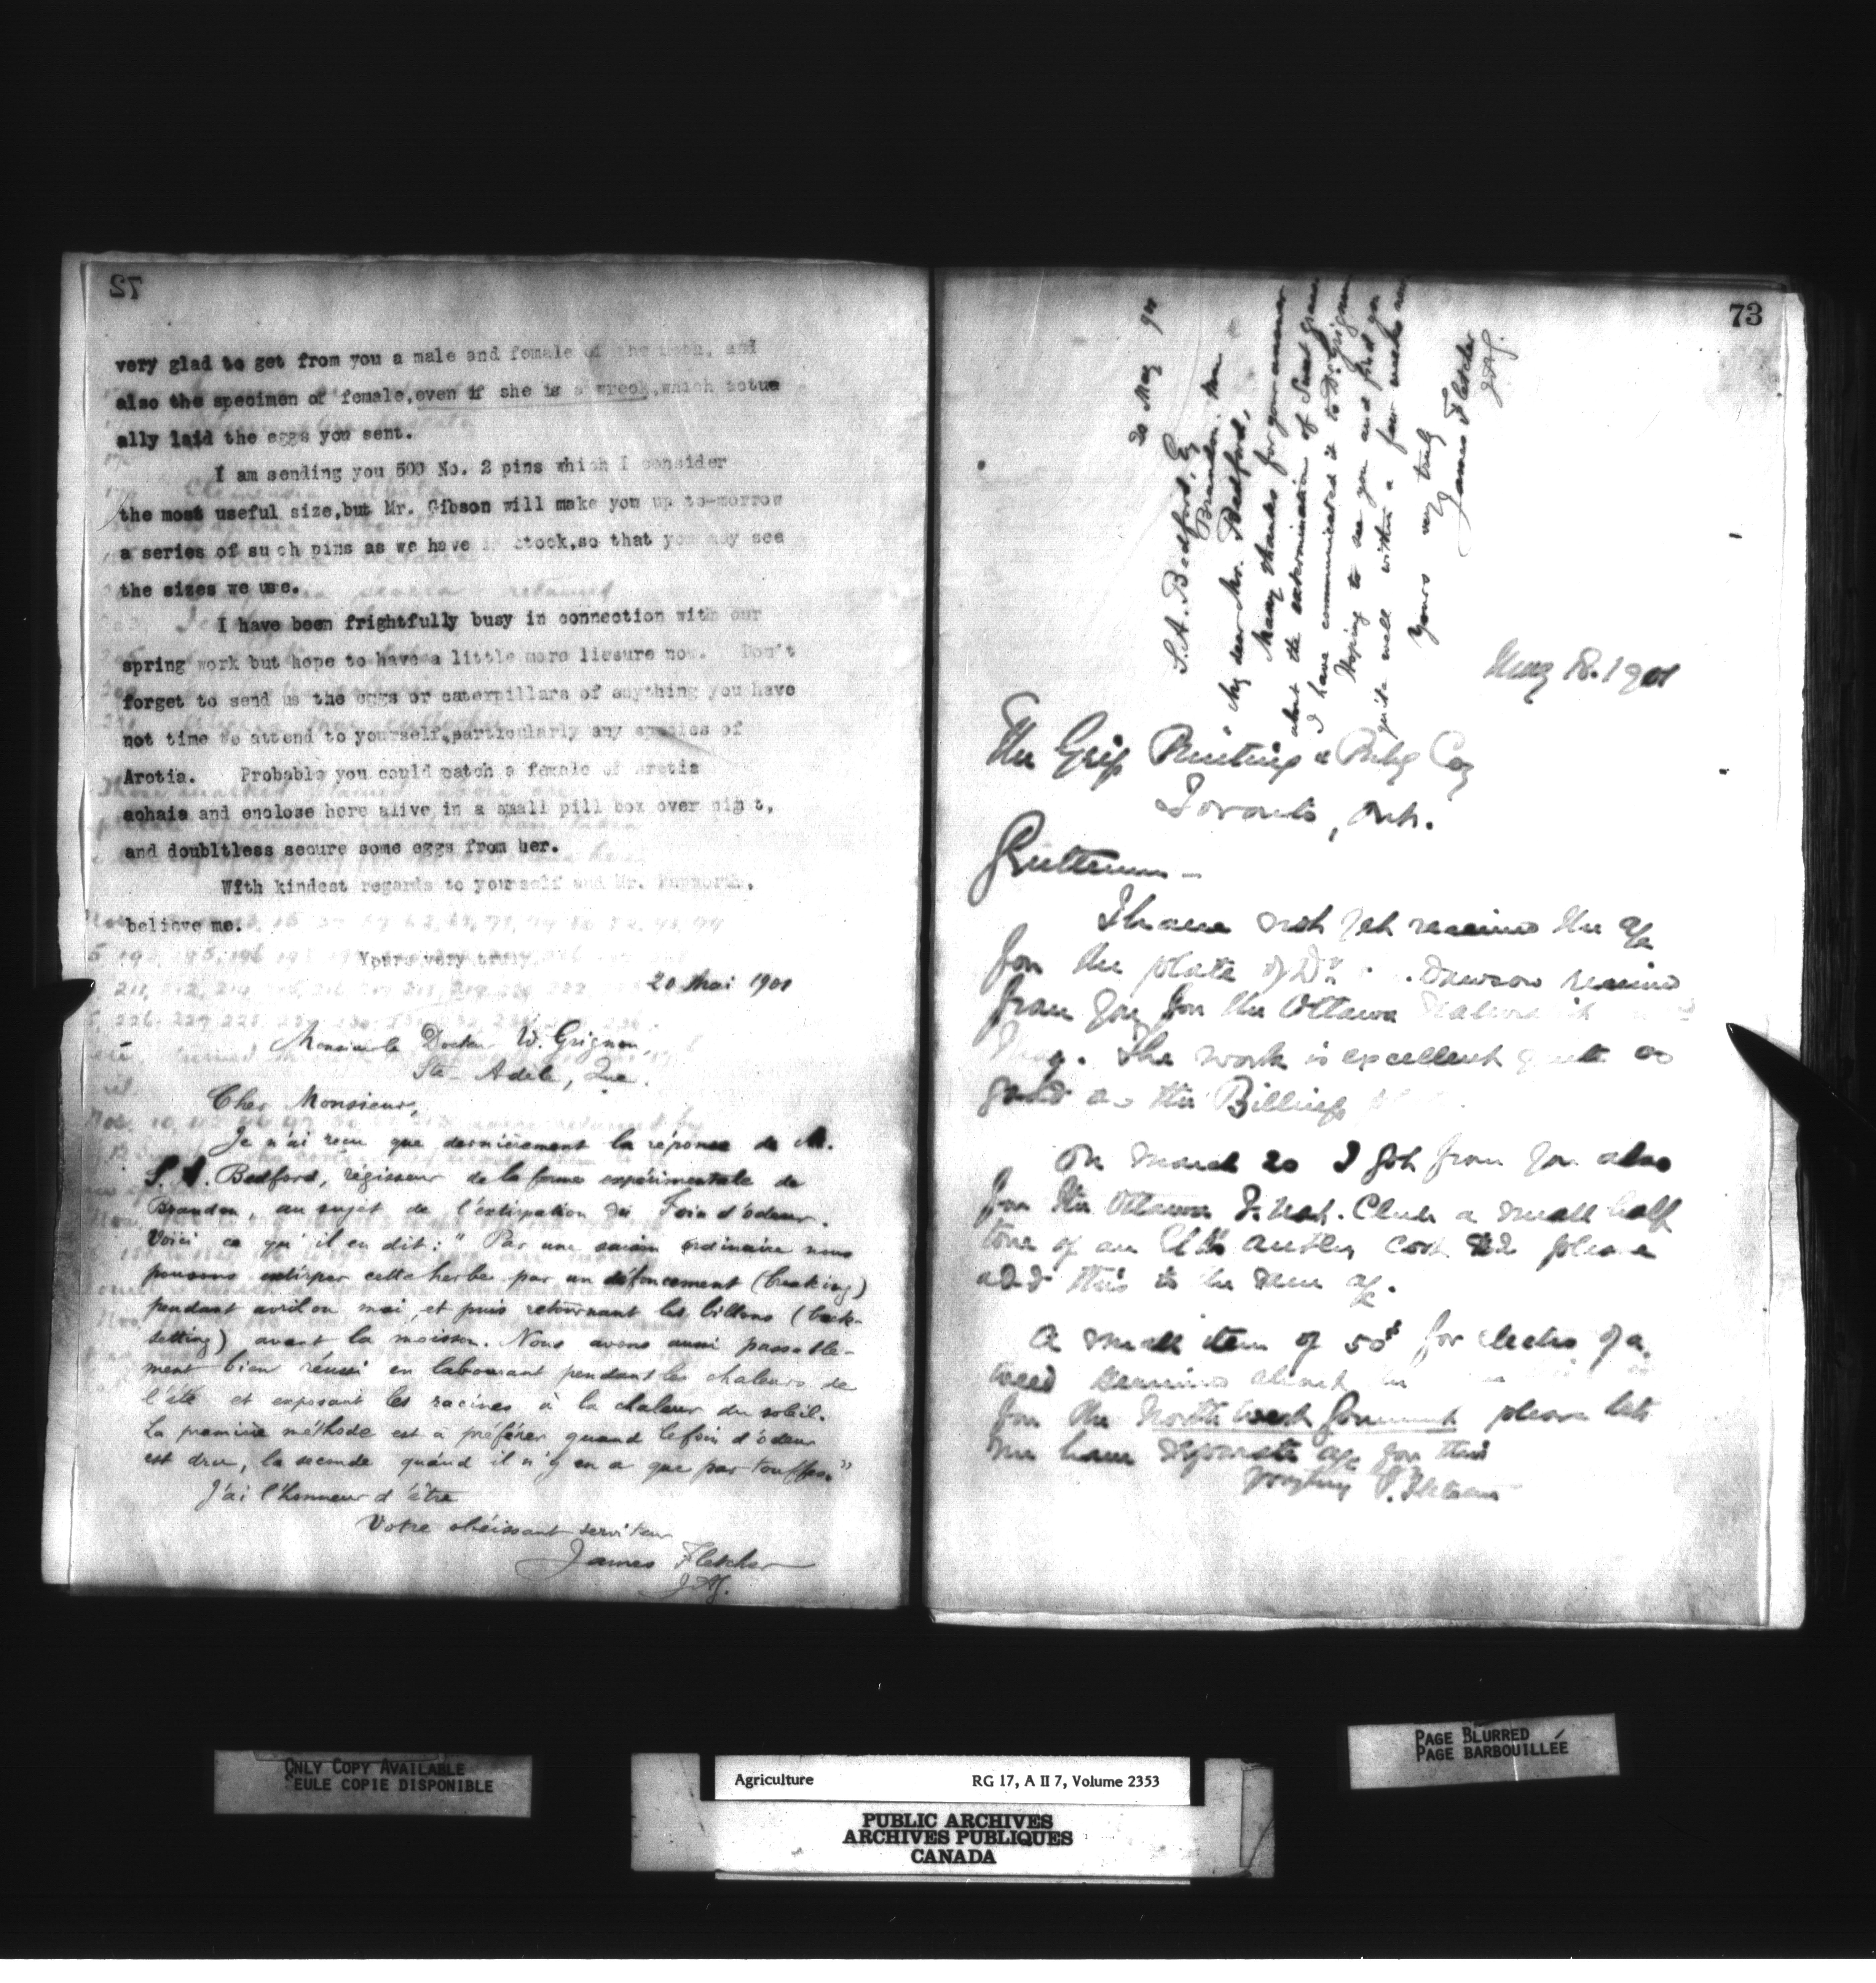 72
very glad to get from you a male and fomale of the moth, and
also the specimen of female, even if she is a wreck, which actua
ally laid the eggs you sent.
I am sending you 500 No. 2 pins which I consider
the most useful size, but Mr. Gibson will make you up to-morrow
a series of such pins as we have in stock, so that you may see
the sizes we use.
I have been frightfully busy in connection with our
spring work but hope to have a little more liesure now. Don't
forget to send us the eggs or caterpillars of anything you have
not time to attend to yourself, particularly any species of
Arctia. Probable you could catch a female of Arctia
achaia and enclose here alive in a small pill box over night,
and doubltless secure some eggs from her.
With kindest regards to yourself and Mr.
believe me.
Yours very truly
20 Mai 1901
Monsieur le Docteur W. Grignon,
Ste-Adèle, Que.
Cher Monsieur,
Je n'ai reçu que dernièrement la réponse de M.
S. A. Bedford, régisseur de la ferme expérimentale de
Brandon, au sujet de l'extirpation du Foin d'odeur.
Voici ce qu'il en dit: "Par une saison ordinaire nous
pouvons extirper cette herbe par un défoncement (breaking)
pendant avril ou mai, et puis retournant les billons (back-
setting) avant la moisson. Nous avons aussi passable-
ment bien réussi en labourant pendant les chaleurs de
l'été et exposant les racines à la chaleur du soleil.
La première méthode est à préférer quand le foin d'odeur
est dru, la seconde quand il n'y en a que par touffes."
J'ai l'honneur d'être
Votre obéissant serviteur
James Fletcher
73
20 May 901
S. A. Bedford, Esq
Brandon. Man
My dear Mr. Bedford,
Many thanks for your answer
about the extermination of Sweet grass
I have communicated it to Dr. Grignon
Hoping to see you and find you
quite well within a few weeks now
Yours very truly
James Fletcher
May 18. 1901
The Grip Printing & Pubg Coy
Toronto, Ont.
Gentlemen -
I have not yet received the a/c
for the plate of Dr. Dawson received
from you for the Ottawa
The work is excellent quite as
good as the Billings
On March 20 I got from you also
for the Ottawa F. Nat. Club a small half
tone of an Elk's antler, cost $2 please
add this to the same a/c.
A small item of 50¢ for electro of a
weed received about
for the North West Government please let
me have separate a/c for this
yrs truly J. Fletcher
ONLY COPY AVAILABLE
SEULE COPIE DISPONIBLE
Agriculture RG 17, A II 7, Volume 2353
PUBLIC ARCHIVES
ARCHIVES PUBLIQUES
CANADA
PAGE BLURRED
PAGE BARBOUILLÉE